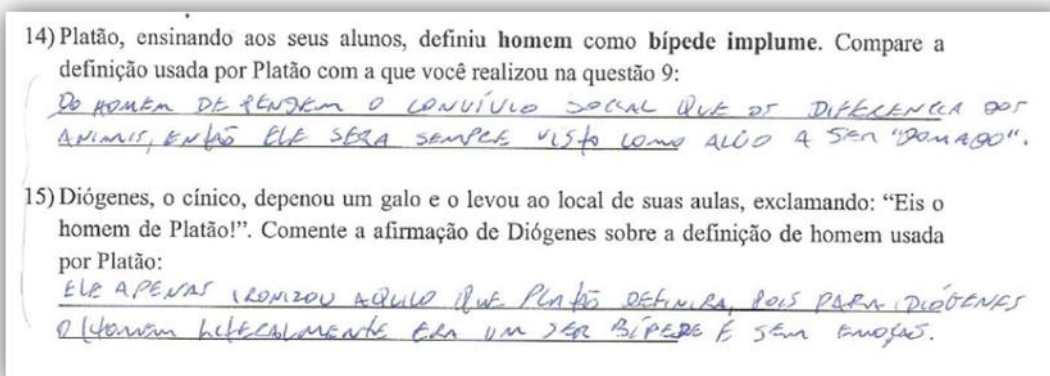 14) Platão, ensinando aos seus alunos, definiu homem como bípede implume. Compare a
definição usada por Platão com a que você realizou na questão 9:
DO HOMEM DEPENDEM O CONVÍVIO SOCIAL QUE OS DIFERENCIA DOS
ANIMAIS, ENTÃO ELE SERA SEMPRE VISTO COMO ALGO A SER "DOMADO".
15) Diógenes, o cínico, depenou um galo e o levou ao local de suas aulas, exclamando: “Eis o
homem de Platão!”. Comente a afirmação de Diógenes sobre a definição de homem usada
por Platão:
ELE APENAS IRONIZOU AQUILO QUE PLATÃO DEFINIRA, POIS PARA DIÓGENES
O HOMEM LITERALMENTE ERA UM SER BÍPEDE E SEM EMOÇÃO.